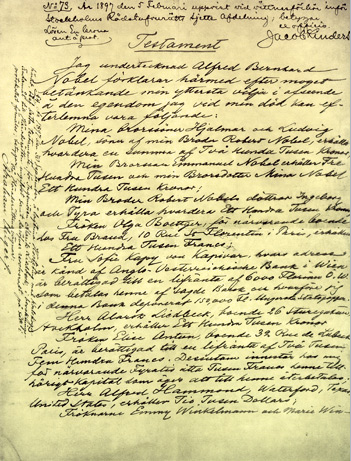 No 73. År 1897 den 5 Februari uppvist vid vittnesförhör inför
Stockholms Rådstufvurätt sjette Afdelning; betygar
Jacob
Testament
Jag undertecknad Alfred Bernhard
Nobel förklarar härmed efter moget
betänkande min yttersta vilja i afseende
å den egendom jag vid min död kan ef-
terlemna vara följande:
Mina Brorsöner Hjalmar och Ludvig
Nobel, söner af min Broder Robert Nobel, erhålla
hvardera en summa af Två Hundra Tusen Kronor;
Min Brorson Emmanuel Nobel erhåller Tre
Hundra Tusen och min Brorsdotter Mina Nobel
Ett Hundra Tusen Kronor;
Min Broder Robert Nobels döttrar Ingeborg
och Tyra erhålla hvardera Ett Hundra Tusen Kronor
Fröken Olga Boettger, för närvarande boende
hos Fru Brand, 10 Rue St Florentin i Paris, erhåller
Ett Hundra Tusen Francs;
Fru Sofie Kapy von Kapivar, hvars adress
är känd af Anglo-Oesterreichische Bank i Wien
är berättigad till en lifränta af 6000 Florins Ö.W.
som betalas henne af sagde Bank och hvarför jag
i denna Bank deponerat 150,000 Fl. i Ungerska Statspapper.
Herr Alarik Liedbeck, boende 26 Sturegatan
Stockholm, erhåller Ett Hundra Tusen Kronor;
Fröken Elise Antun, boende 32 Rue de Lubeck
Paris, är berättigad till en lifränta af Två Tusen
Fem Hundra Francs. Desutom innestår hos mig
för närvarande Fyratio åtta Tusen Francs henne till-
hörigt kapital som äger att till henne återbetalas;
Herr Alfred Hammond, Waterford, Texas
United States, erhåller Tio Tusen Dollars;
Fröknarne Emmy Winkelmann och Marie Win-